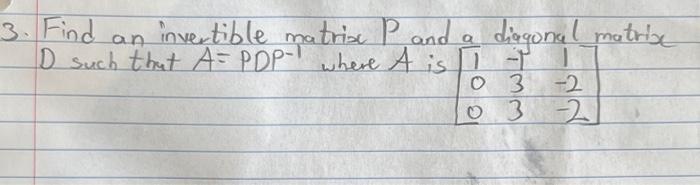 3. Find an invertible matrix P and a diagonal matrix
D such that A = PDP⁻¹ where A is [1 -1 1
0 3 -2
0 3 -2]